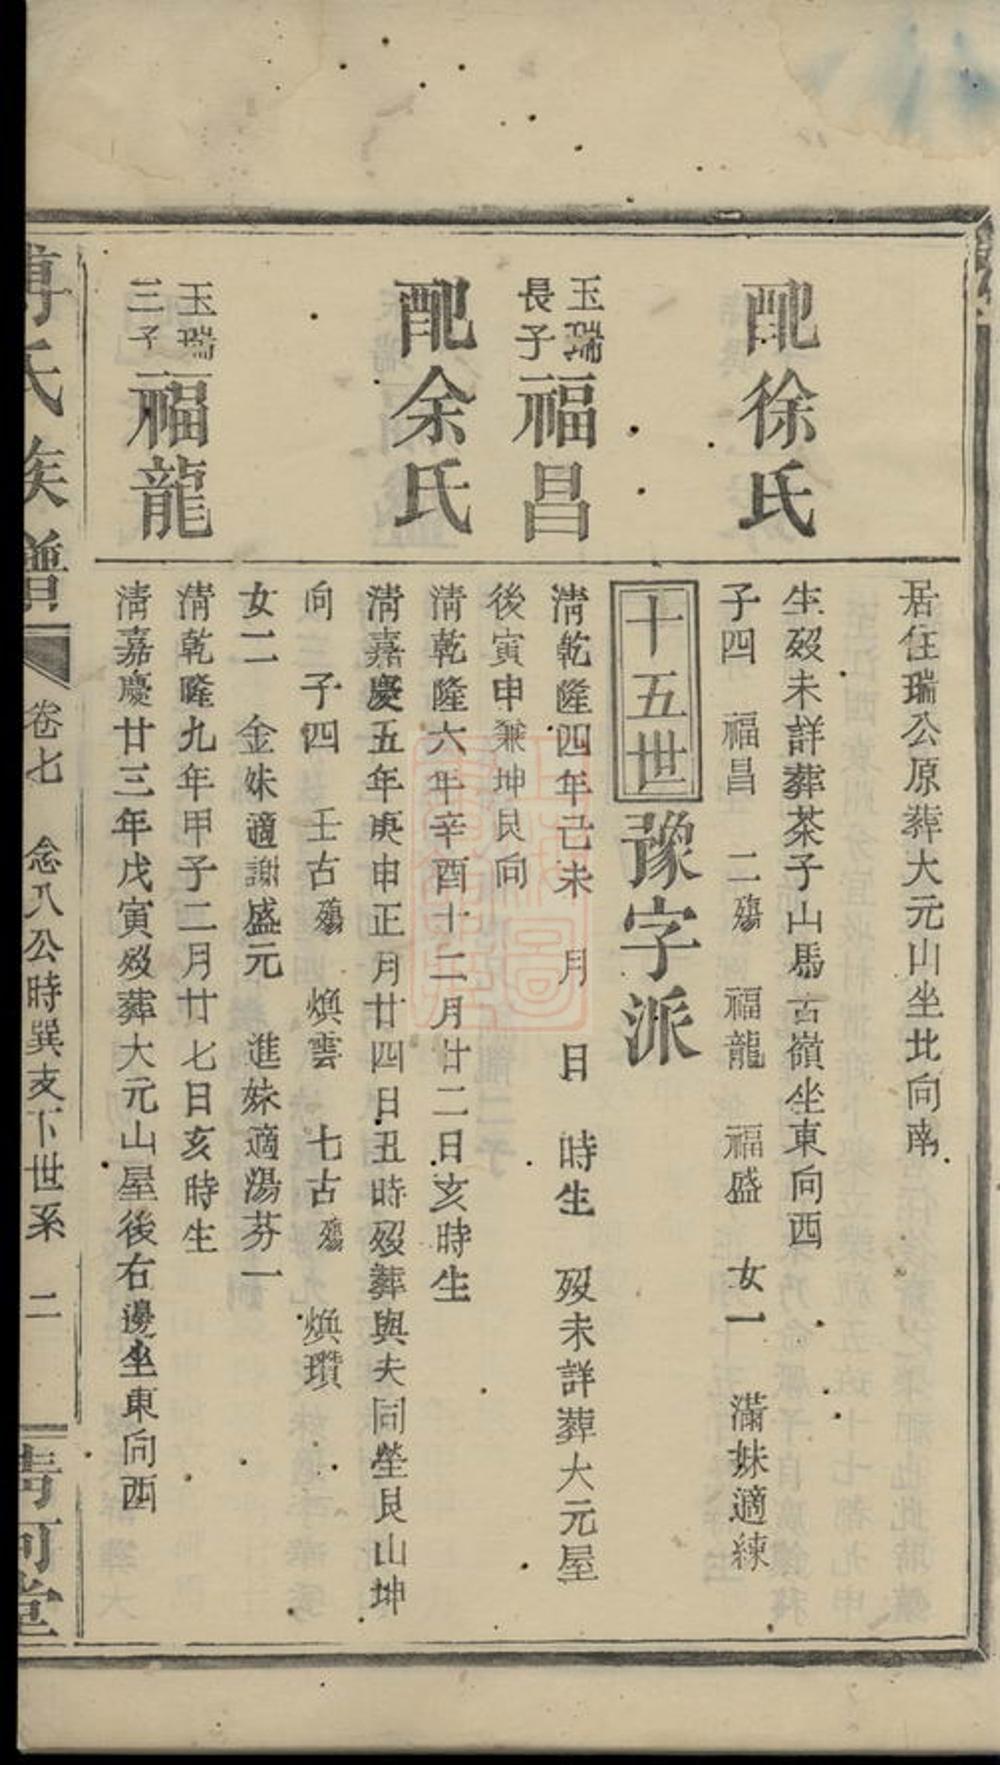 居住瑞公原葬大元山坐北向南
配徐氏
生歿未詳葬茶子山馬古嶺坐東向西
子四 福昌 二殤 福龍 福盛 女一 滿妹適練
十五世豫字派
玉瑞長子福昌
清乾隆四年己未 月 日 時生 歿未詳葬大元屋
後寅申兼坤艮向
配余氏
清乾隆六年辛酉十二月廿二日亥時生
清嘉慶五年庚申正月廿四日丑時歿葬與夫同塋艮山坤
向 子四 壬古殤 煥雲 七古殤 煥瓚
女二 金妹適謝盛元 進妹適湯芬一
玉瑞三子福龍
清乾隆九年甲子二月廿七日亥時生
清嘉慶廿三年戊寅歿葬大元山屋後右邊坐東向西
氏族譜 卷七 念八公時巽支下世系 二 河堂